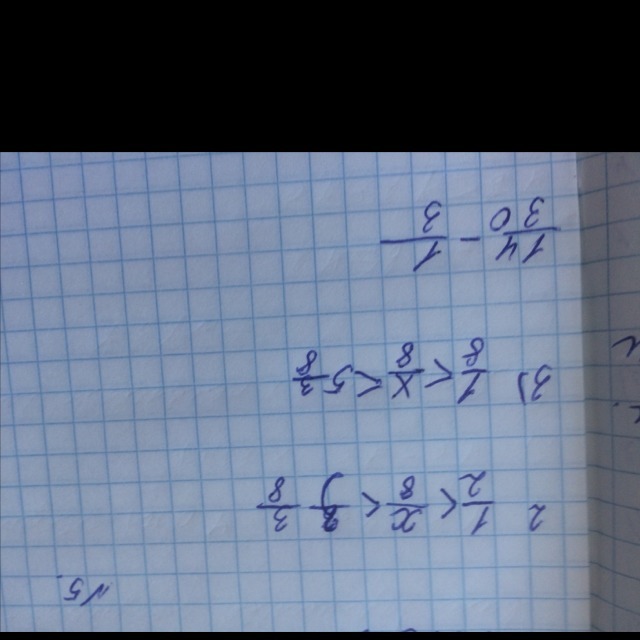 √5
2 1/2 < x/8 < 3/8
3) 1/8 < x/8 < 5
14/30 - 1/3